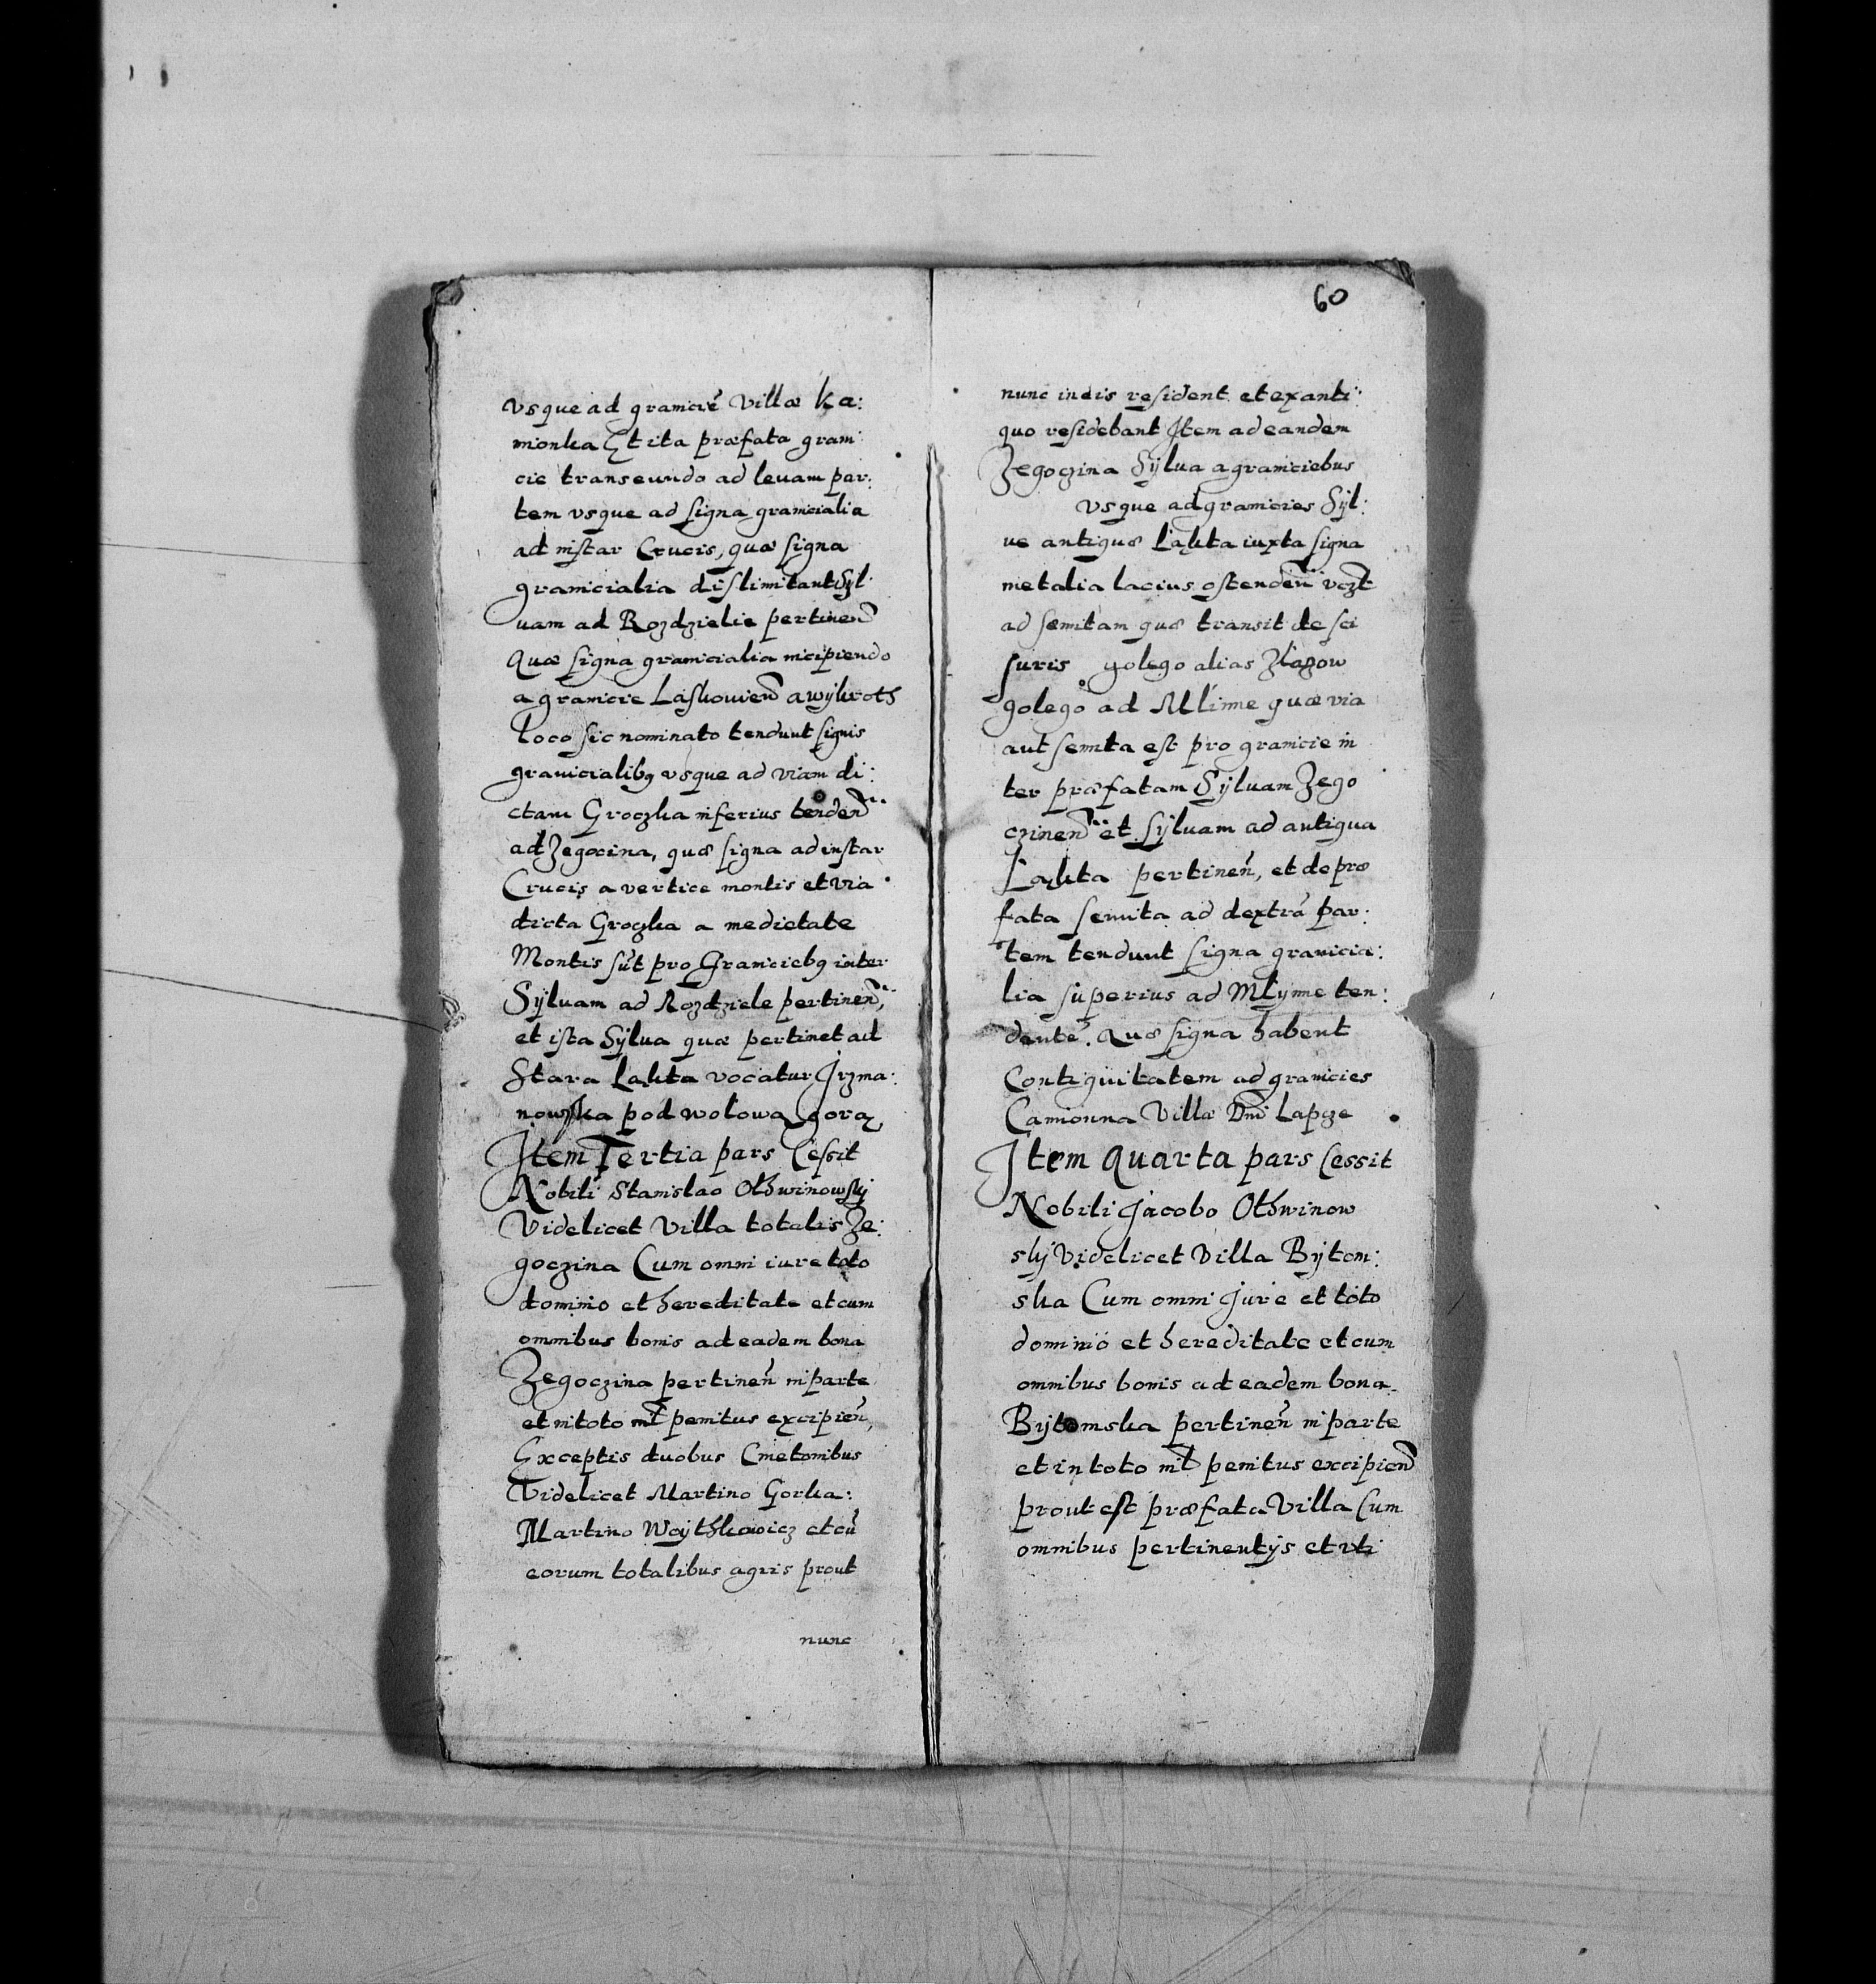 vsque ad gramcié Villæ Ka:
mionka Et ita præfata gram:
cie transeundo ad leuam par:
tem vsque ad signa gramcialia
ad instar Crucis, quæ signa
granicialia dislimitant Syl:
uam ad Rozdzielie pertinen
Quæ signa granicialia incipiendo
a granicie Laskouien a wykroth
loco sic nominato tendunt signis
granicialibq vsque ad viam di:
ctam Groczka inferius tenden
ad Zegocina, quæ signa ad instar
Crucis a vertice montis et via
dicta Groczka a medietate
Montis sut pro Graniciebq inter
Syluam ad Rozdziele pertinen,
et ista Sylua quæ pertinet ad
Stara Łąkta vocatur Jrzma:
nowska pod wołowa gorą
Item Tertia pars Cessit
Nobili Stanislao Othwinowsky
Videlicet Villa totalis Ze:
goczina Cum omni iure toto
dominio et hereditate et cum
omnibus bonis ad eadem bona
Zegoczina pertinen in parte
et in toto nil penitus excipien,
Exceptis duobus Cmetonibus
Videlicet Martino Gorka:
Martino Woythkowicz et cu
eorum totalibus agris prout
nunc
60
nunc in dis resident et ex anti:
quo residebant Item ad eandem
Zegoczina Sylua a graniciebus
vsque ad granicies Syl:
ue antiquæ Łąkta iuxta signa
metalia lacius ostenden vczt
ad semitam quæ transit de sci
suris golego alias Zlazow
golego ad Mlinne quæ via
aut semita est pro granicie in
ter præfatam Syluam Zego
czinen et Syluam ad antiqua
Łąkta pertinen, et de præ
fata semita ad dextrã par:
tem tendunt signa granicia:
lia superius ad Mlynne ten:
dente. Quæ signa habent
Contiguitatem ad granicies
Camionna Villæ Dni Lapcze
Item Quarta pars Cessit
Nobili Jacobo Othwinow
sky Videlicet Villa Bytom:
ska Cum omni Jure et toto
dominio et hereditate et cum
omnibus bonis ad eadem bona
Bytomska pertinen in parte
et in toto nil penitus excipien
prout est præfata Villa Cum
omnibus pertinentys et vti